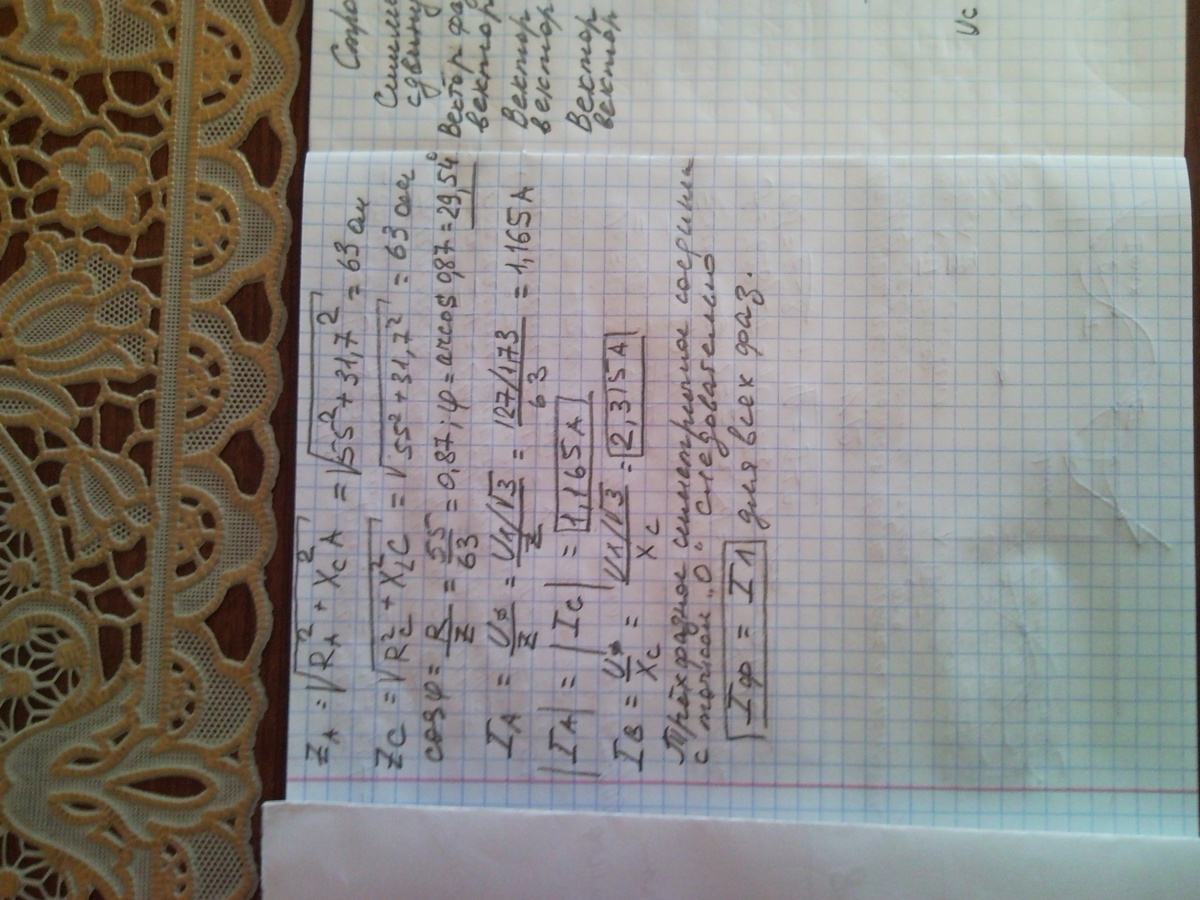 Z_A = √R_A² + X_CA² = √55² + 31,7² = 63 ом
Z_C = √R_C² + X_LC² = √55² + 31,7² = 63 ом
cosφ = R/Z = 55/63 = 0,87; φ = arccos 0,87 = 29,54°
I_A = Uф/Z = U1/√3/Z = 127/1,73/63 = 1,165 А
|I_A| = |I_C| = 1,165 А
I_B = Uф/X_C = U1/√3/X_C = 2,315 А
Трёхфазное симметричное соедине
с точкой "О" следовательно
Iф = I1 для всех фаз.
сдвину
вектор
Вектор
вектор
Вектор
вектор
Uc